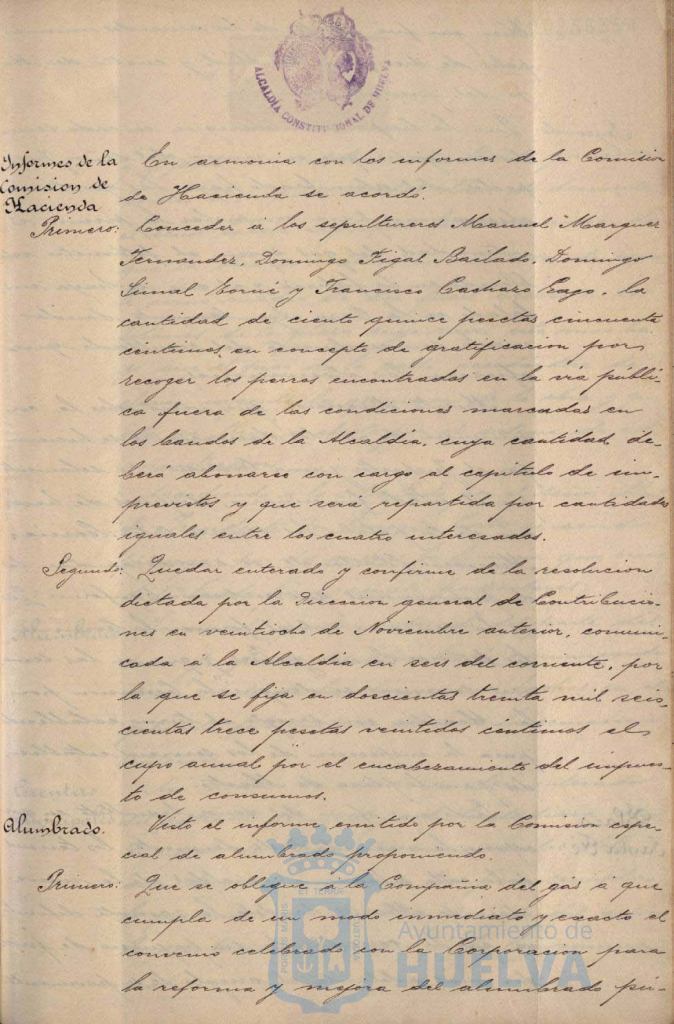 ALCALDÍA CONSTITUCIONAL DE HUELVA
Informes de la
Comision de
Hacienda
En armonia con los informes de la Comision
de Hacienda se acordó.
Primero: Conceder á los sepultureros Manuel Marquez
Fernandez, Domingo Figal Bailado, Domingo
Simal Torné y Francisco Cachazo Gago, la
cantidad de ciento quince pesetas cincuenta
centimos, en concepto de gratificacion por
recoger los perros encontrados en la via públi-
ca fuera de las condiciones marcadas en
los bandos de la Alcaldía, cuya cantidad de-
berá abonarse con cargo al capitulo de im-
previstos y que será repartida por cantidades
iguales entre los cuatro interesados.
Segundo: Quedar enterado y conforme de la resolucion
dictada por la Direccion general de Contribucio-
nes en veintiocho de Noviembre anterior, comuni-
cada á la Alcaldia en seis del corriente, por
la que se fija en doscientas treinta mil seis-
cientas trece pesetas veintidos céntimos el
cupo annual por el encabezamiento del impues-
to de consumos.
Alumbrado. Visto el informe emitido por la Comision espe-
cial de alumbrado proponiendo.
Primero: Que se obligue á la Compañia del gas á que
cumpla de un modo inmediato y exacto el
convenio celebrado con la Corporacion para
la reforma y mejora del alumbrado pú-
Ayuntamiento de
HUELVA